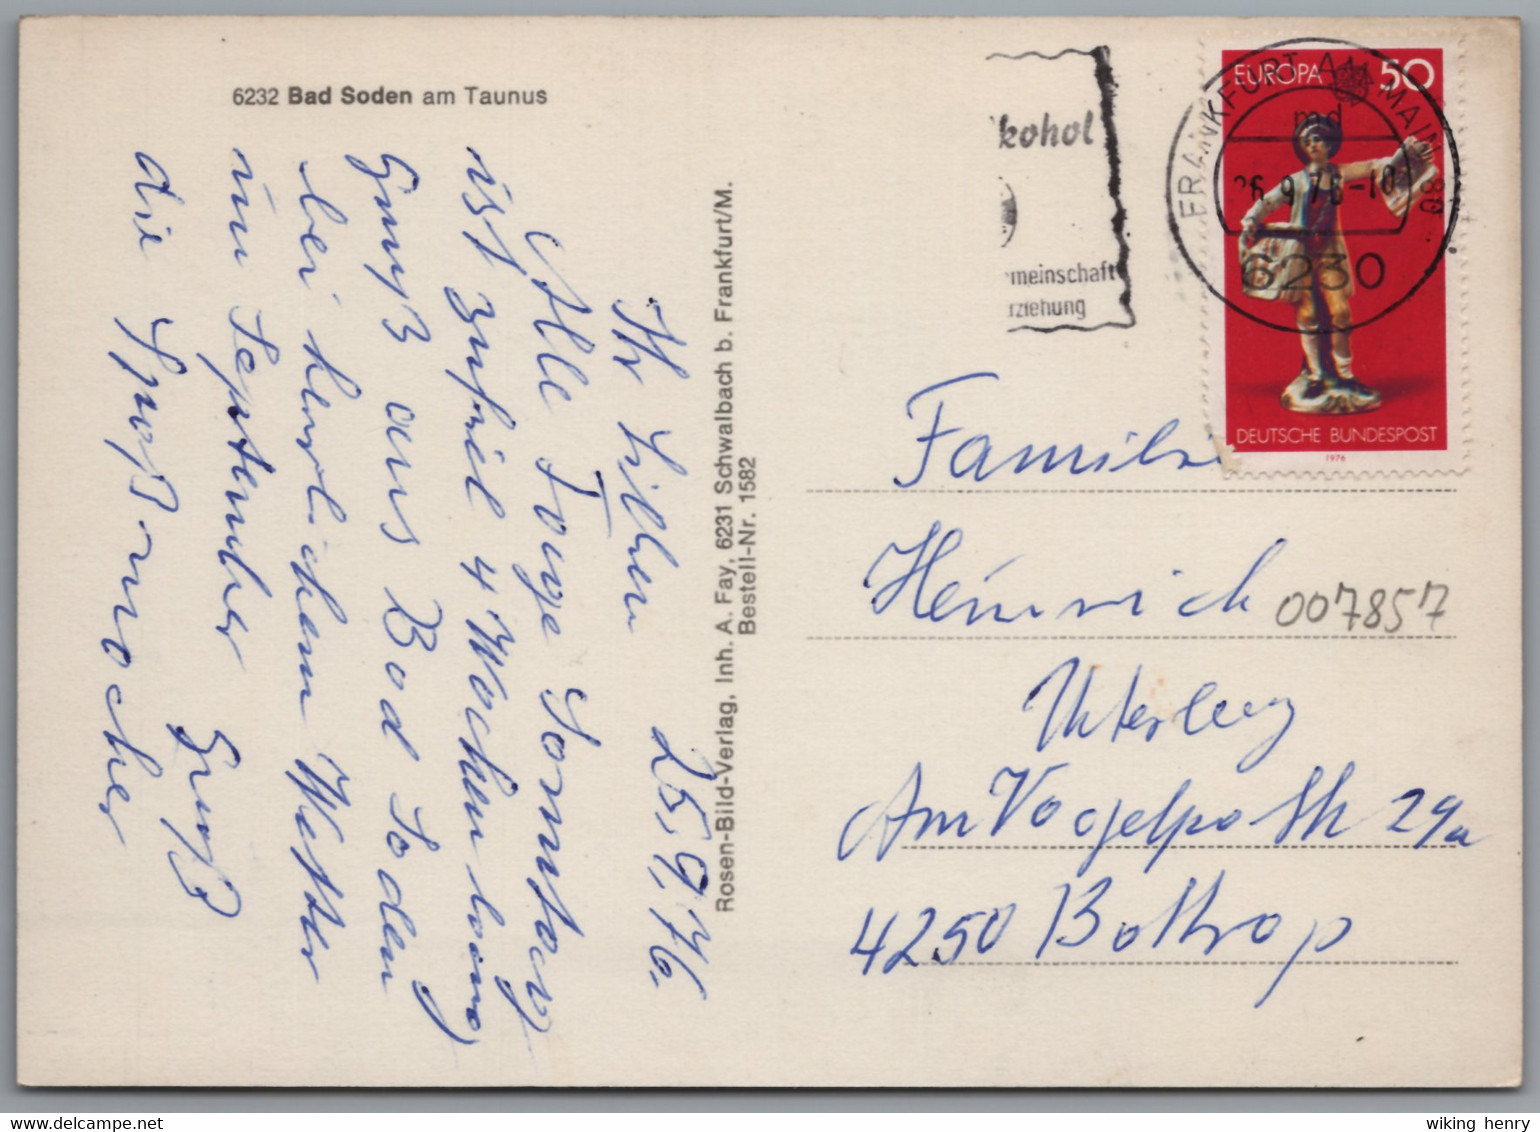 6232 Bad Soden am Taunus
25.9.76.
Ihr Lieben
Alle Tage Sonntag
ist zuviel 4 Wochen lang
Gruß aus Bad Soden
bei herlichem Wetter
im September Gruß
die Spaßmacher
Rosen-Bild-Verlag, Inh. A. Fay, 6231 Schwalbach b. Frankfurt/M.
Bestell-Nr. 1582
kohol
meinschaft
rziehung
FRANKFURT AM MAIN 80
md
26.9.76-10
6230
EUROPA 50
DEUTSCHE BUNDESPOST
1976
Familie
Heinrich
007857
Uterlueg
Am Vogelpoth 29a
4250 Bottrop
wiking henry